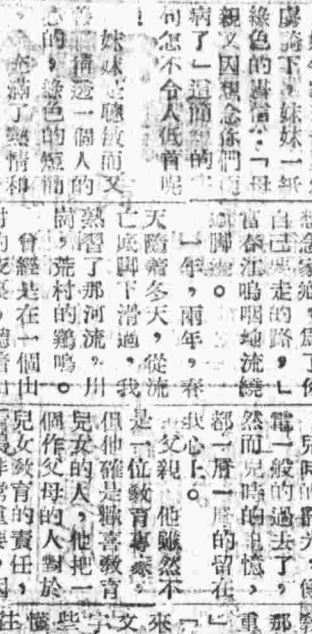 騎下，妹妹一紙
綠色的書信：「母
親又因想念你們而
病了」這簡的
句怎不令人低首呢
！
妹妹是聰敏而又
猜透一個人的
的，綠色的短簡
，充滿了熱情和
想念家鄉，為了你
自己要走的路，」
富春江嗚咽地流繞
脚邊。
一年，兩年，春
天隨着冬天，從流
亡底脚下滑過，我
熟習了那河流，川
樹，荒村的鷄鳴。
曾經是在一個山
村的夜裏，聽着
兒時的時光，像
電一般的過去了，
然而兒時的記憶，
都一層一層的留在
我心上。
父親，他雖然不
是一位教育專家，
但他確是歡喜教育
兒女的人，他把一
個作父母的人對於
兒女教育的責任，
非常重要，因
那
重
」
來
文
字
些
懂
往